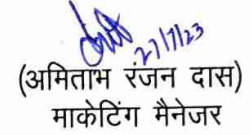 27/7/23
(अमिताभ रंजन दास)
मार्केटिंग मैनेजर